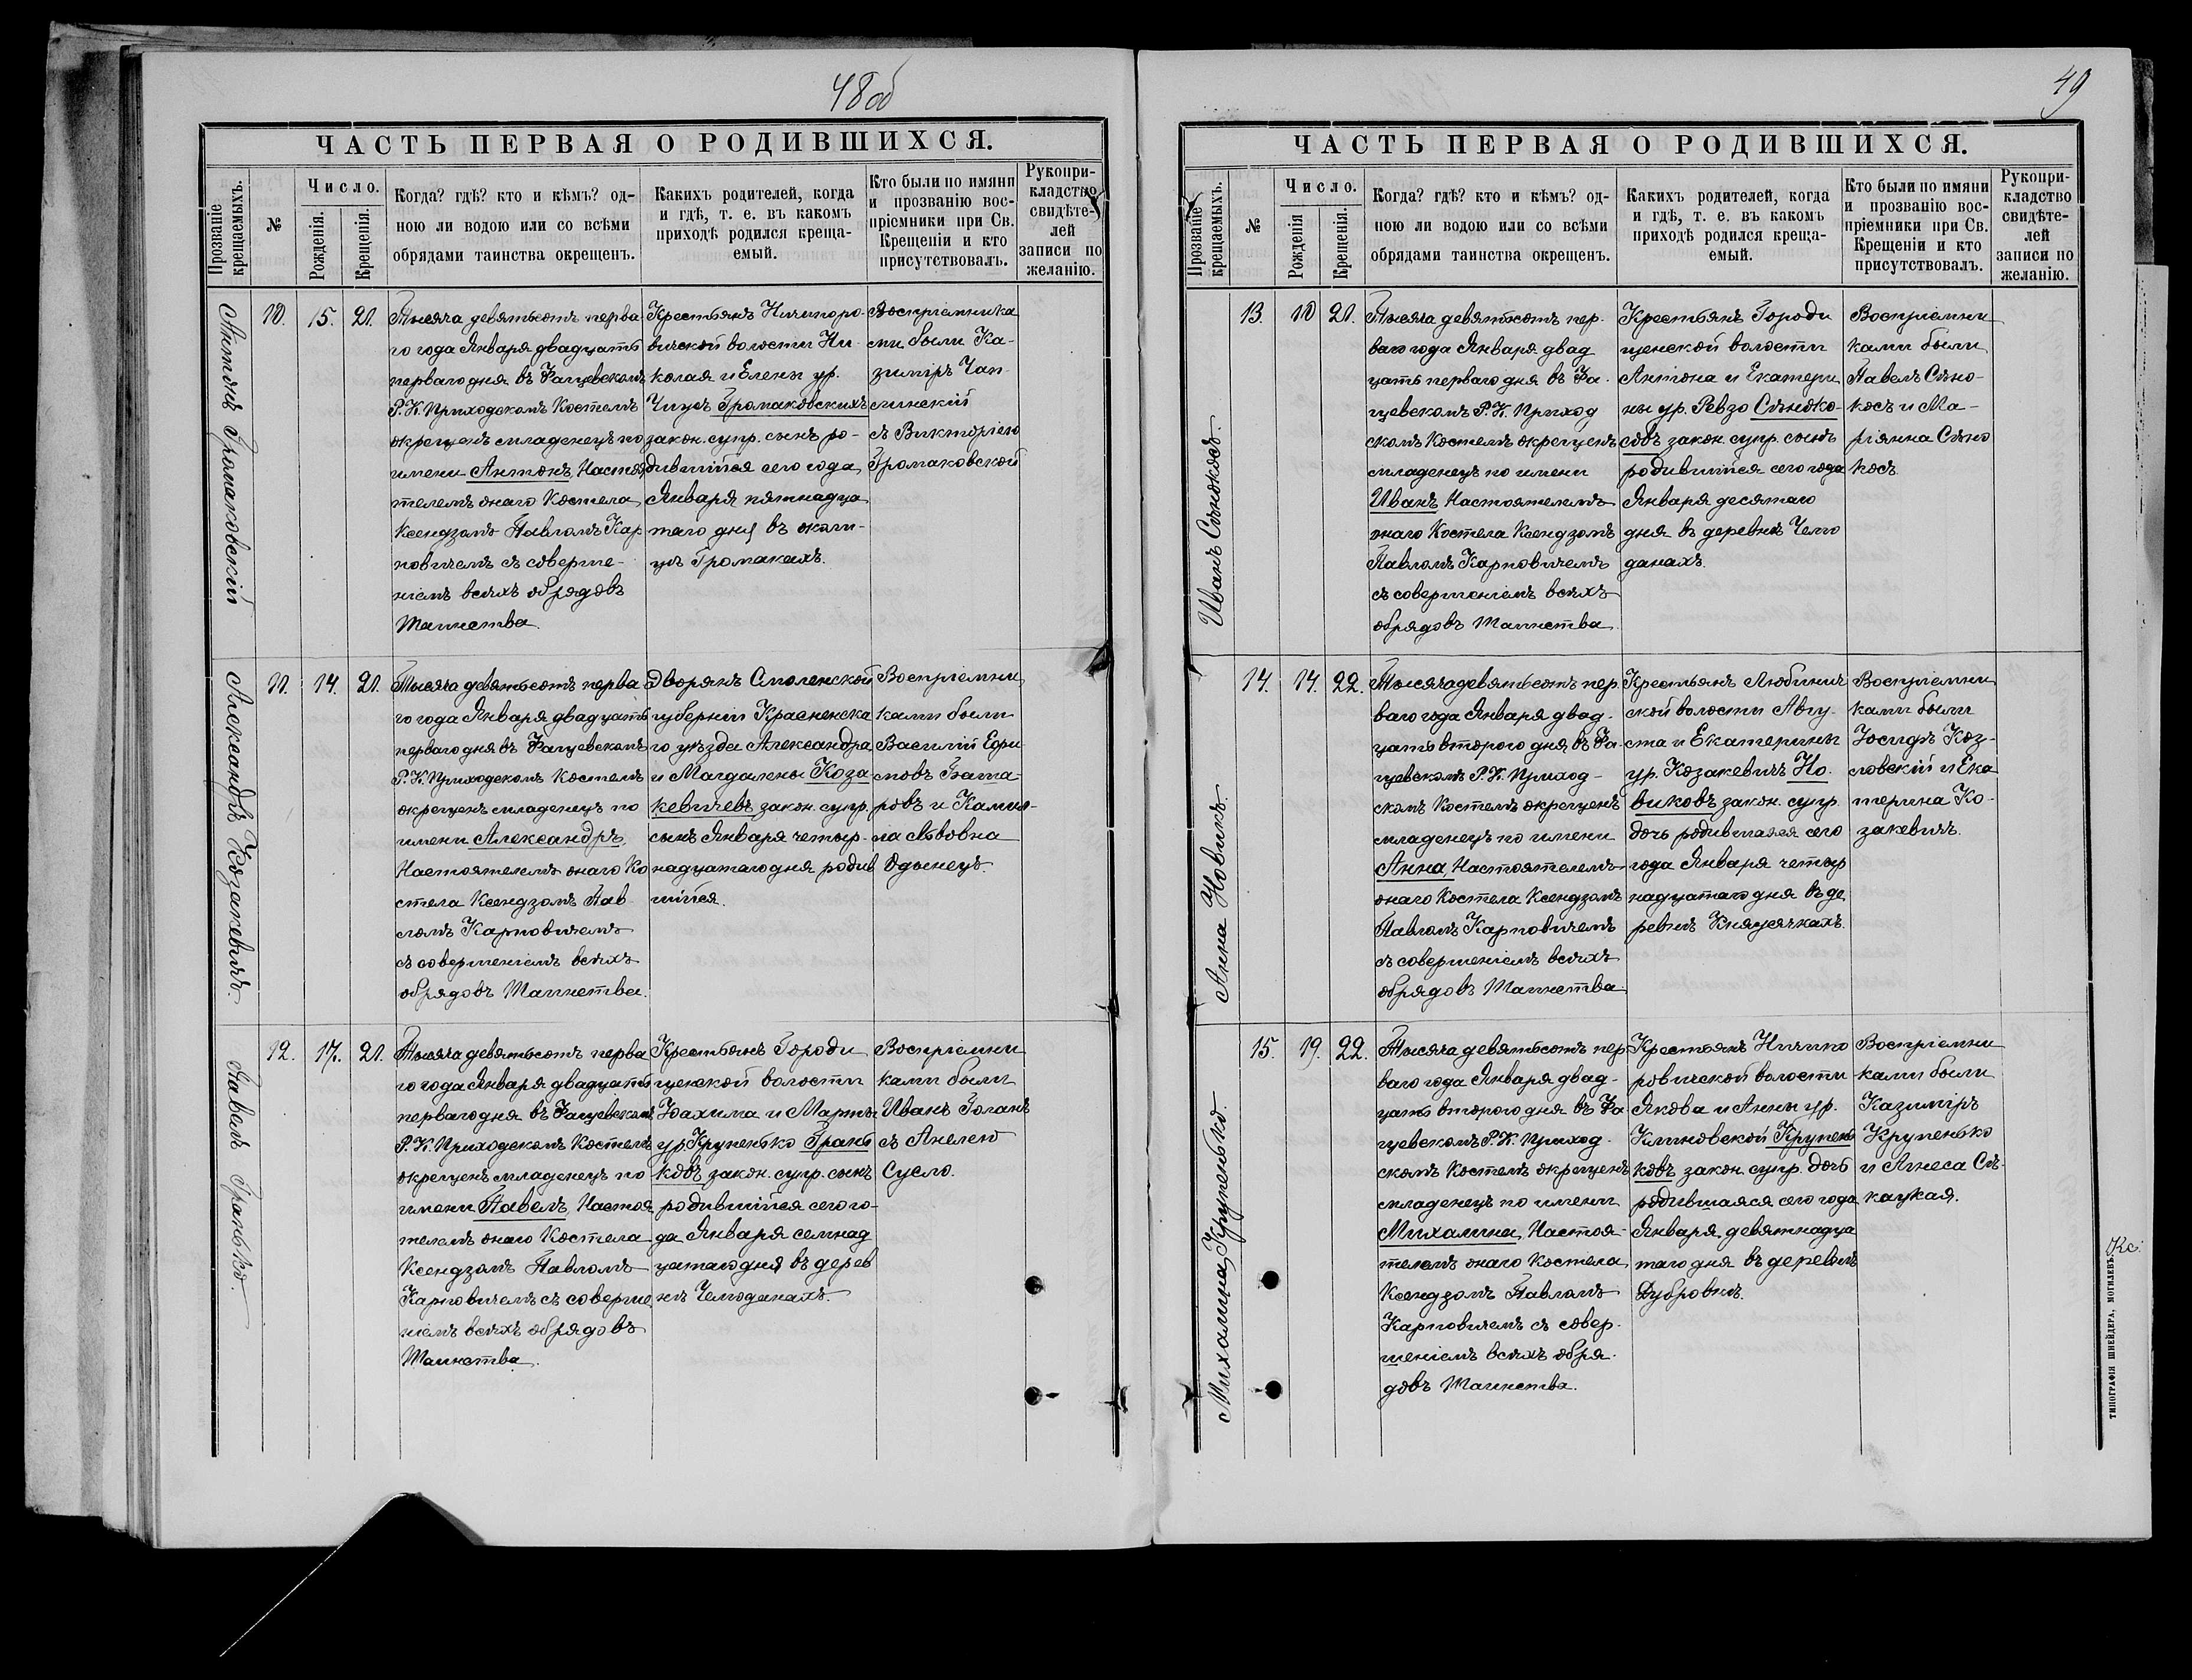 48об
ЧАСТЬ ПЕРВАЯ О РОДИВШИХСЯ.
Прозваніе крещаемыхъ.
№
Число.
Рожденія.
Крещенія.
Когда? гдѣ? кто и кѣмъ? од-
ною ли водою или со всѣми
обрядами таинства окрещенъ.
Какихъ родителей, когда
и гдѣ, т. е. въ какомъ
приходѣ родился креща-
емый.
Кто были по имяни
и прозванію вос-
пріемники при Св.
Крещеніи и кто
присутствовалъ.
Рукопри-
кладство
свидѣте-
лей
записи по
желанію.
Антонъ Громаковскій
10.
15.
21.
Тысяча девятьсотъ перва
го года Января двадцать
перваго дня въ Фащевскомъ
Р. К. Приходскомъ Костелѣ
окрещенъ младенецъ по
имени Антонъ, Настоя
телемъ онаго Костела
Ксендзомъ Павломъ Кар
повичемъ съ соверше-
ніемъ всѣхъ обрядовъ
Таинства.
Крестьянъ Ничипоро-
вичской волости Ни-
колая и Елены ур.
Чиусъ Громаковскихъ
закон. супр. сынъ ро-
дившійся сего года
Января пятнадца
таго дня въ околи-
цѣ Громакахъ.
Воспріемника
ми были Ка-
зиміръ Чап-
линскій
съ Викторіею
Громаковской
Александръ Козакевичъ.
11.
14.
21.
Тысяча девятьсотъ перва
го года Января двадцать
перваго дня въ Фащевскомъ
Р. К. Приходскомъ Костелѣ
окрещенъ младенецъ по
имени Александръ,
Настоятелемъ онаго Ко
стела Ксендзомъ Пав
ломъ Карповичемъ
съ совершеніемъ всѣхъ
обрядовъ Таинства.
Дворянъ Смоленской
губерніи Красненска
го уѣзда Александра
и Магдалены Коза-
кевичевъ закон. супр.
сынъ Января четыр-
надцатаго дня родив
шійся.
Воспріемни
ками были
Василій Ефри
мовъ
ровъ и Камил-
ла Львовна
Одынецъ.
Павелъ Гранько.
12.
17.
21.
Тысяча девятьсотъ перва
го года Января двадцать
перваго дня въ Фащевскомъ
Р. К. Приходскомъ Костелѣ
окрещенъ младенецъ по
имени Павелъ, Настоя
телемъ онаго Костела
Ксендзомъ Павломъ
Карповичемъ съ соверше
ніемъ всѣхъ обрядовъ
Таинства.
Крестьянъ Городи
щенской волости
Іоахима и Марты
ур. Крупенько Грань
ковъ закон. супр. сынъ
родившійся сего го-
да Января семнад
цатаго дня въ дерев
нѣ Чемоданахъ.
Воспріемни
ками были
Иванъ
съ Анелею
Сусло.
49
ЧАСТЬ ПЕРВАЯ О РОДИВШИХСЯ.
Прозваніе крещаемыхъ.
№
Число.
Рожденія
Крещенія.
Когда? гдѣ? кто и кѣмъ? од-
ною ли водою или со всѣми
обрядами таинства окрещенъ.
Какихъ родителей, когда
и гдѣ, т. е. въ какомъ
приходѣ родился креща-
емый.
Кто были по имяни
и прозванію вос-
пріемники при Св.
Крещеніи и кто
присутствовалъ.
Рукопри-
кладство
свидѣте-
лей
записи по
желанію.
Иванъ Сѣнокосъ.
13.
10
21.
Тысяча девятьсотъ пер-
ваго года Января двад
цать перваго дня въ Фа-
щевскомъ Р. К. Приход
скомъ Костелѣ окрещенъ
младенецъ по имени
Иванъ, Настоятелемъ
онаго Костела Ксендзомъ
Павломъ Карповичемъ
съ совершеніемъ всѣхъ
обрядовъ Таинства
Крестьянъ Городи
щенской волости
Антона и Екатери
ны ур. Ревзо Сѣноко-
совъ закон. супр. сынъ
родившійся сего года
Января десятаго
дня въ деревнѣ Чемо
данахъ.
Воспріемни
ками были
Павелъ Сѣно-
косъ и Ма-
ріянна Сѣно
косъ
Анна Новикъ.
14.
14.
22.
Тысяча девятьсотъ пер-
ваго года Января двад-
цать второго дня въ Фа-
щевскомъ Р. К. Приход-
скомъ Костелѣ окрещенъ
младенецъ по имени
Анна, Настоятелемъ
онаго Костела Ксендзомъ
Павломъ Карповичемъ
съ совершеніемъ всѣхъ
обрядовъ Таинства
Крестьянъ Любинич
ской волости Авгу-
ста и Екатерины
ур. Козакевичъ Но-
виковъ закон. супр.
дочь родившаяся сего
года Января четыр
надцатаго дня въ де
ревнѣ Княжичкахъ.
Воспріемни
ками были
Іосифъ Коз-
ловскій и Ека
терина Ко-
закевичъ.
Михалина Крупенько.
15.
19.
22.
Тысяча девятьсотъ пер
ваго года Января двад-
цать второго дня въ Фа
щевскомъ Р. К. Приход-
скомъ Костелѣ окрещенъ
младенецъ по имени
Михалина, Настоя-
телемъ онаго Костела
Ксендзомъ Павломъ
Карповичемъ съ совер-
шеніемъ всѣхъ обря-
довъ Таинства.
Крестьянъ Ничипо
ровичской волости
Якова и Анны ур.
Климовской Крупень
ковъ закон. супр. дочь
родившаяся сего года
Января девятнадца
таго дня въ деревнѣ
Дубровкѣ.
Воспріемни
ками были
Казиміръ
Крупенько
и Агнеса Сѣ-
кацкая.
Кс.
ТИПОГРАФІЯ ШНЕЙДЕРА, МОГИЛЕВЪ